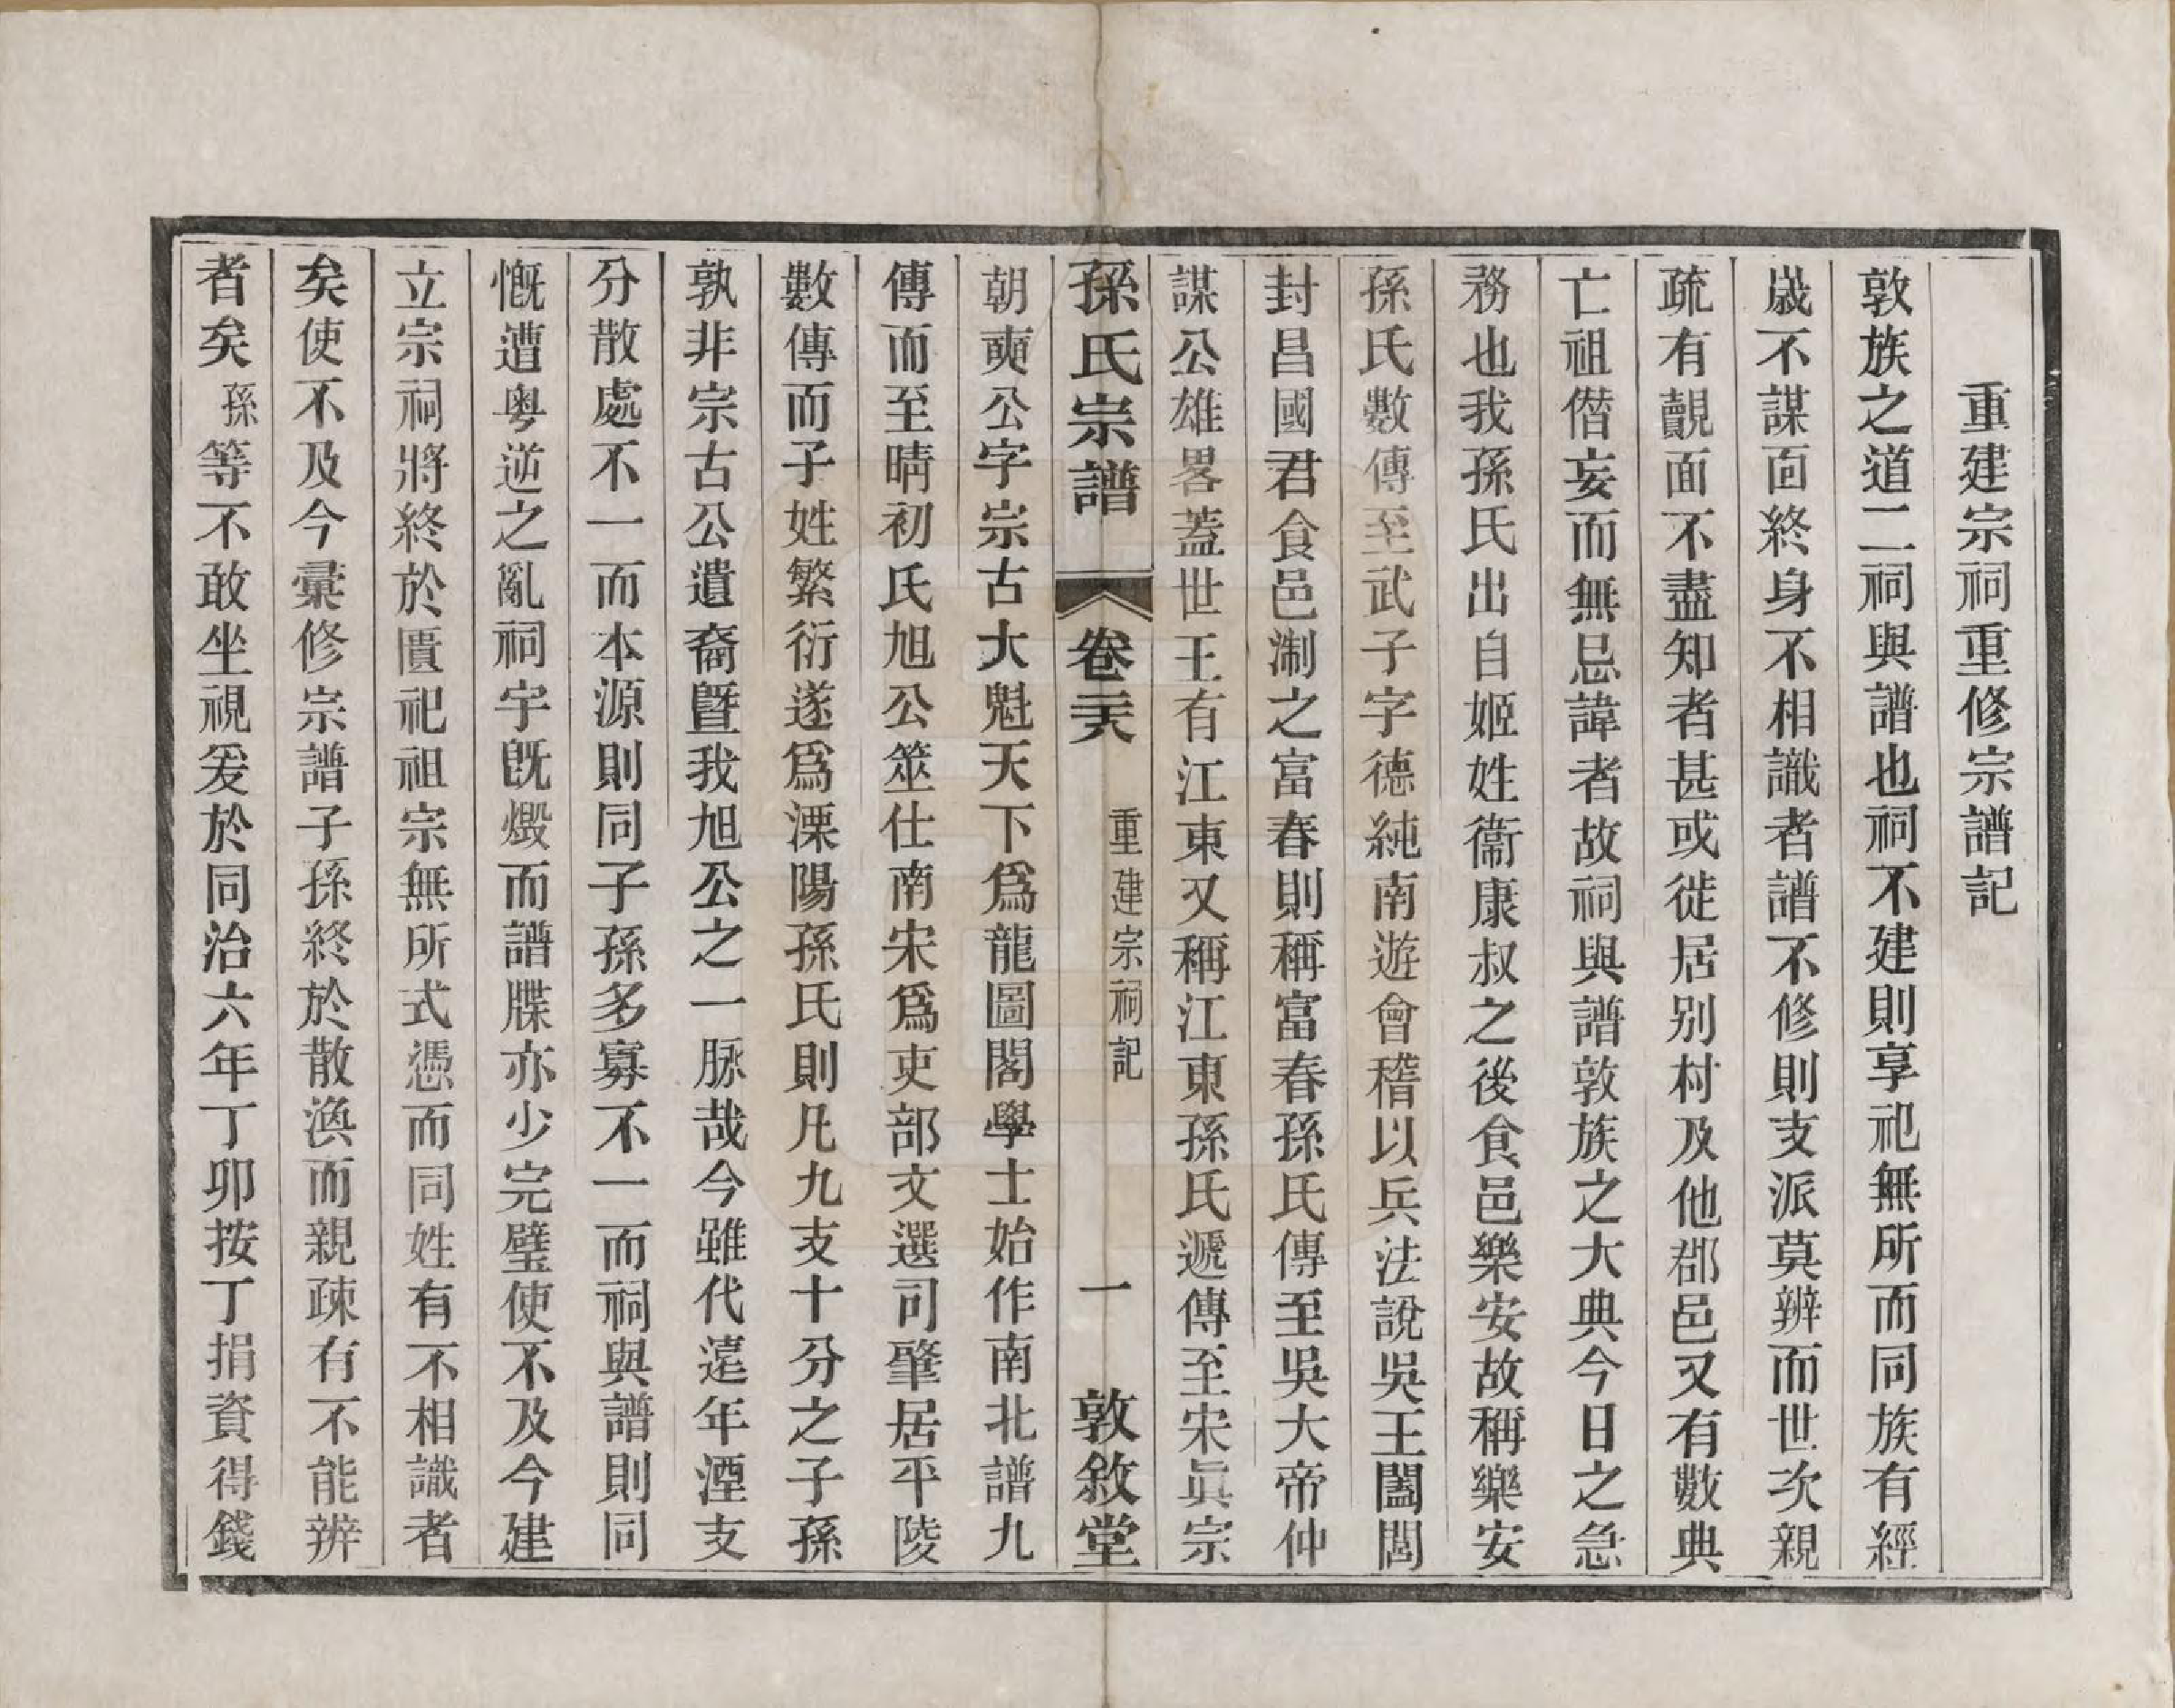 重建宗祠重修宗譜記
敦族之道二祠與譜也祠不建則享祀無所而同族有經
歲不謀面終身不相識者譜不修則支派莫辨而世次親
疏有覿面不盡知者甚或徙居别村及他郡邑又有數典
亡祖僭妄而無忌諱者故祠與譜敦族之大典今日之急
務也我孫氏出自姬姓衞康叔之後食邑樂安故稱樂安
孫氏數傳至武子字德純南遊會稽以兵法說吳王闔閭
封昌國君食邑淛之富春則稱富春孫氏傳至吳大帝仲
謀公雄畧蓋世王有江東又稱江東孫氏遞傳至宋眞宗
孫氏宗譜 卷二六 重建宗祠記 一 敦敘堂
朝奭公字宗古大魁天下爲龍圖閣學士始作南北譜九
傳而至晴初氏旭公筮仕南宋爲吏部文選司肇居平陵
數傳而子姓繁衍遂爲溧陽孫氏則凡九支十分之子孫
孰非宗古公遺裔曁我旭公之一脉哉今雖代遠年湮支
分散處不一而本源則同子孫多寡不一而祠與譜則同
慨遭粤逆之亂祠宇旣燬而譜牒亦少完璧使不及今建
立宗祠將終於匱祀祖宗無所式憑而同姓有不相識者
矣使不及今彙修宗譜子孫終於散渙而親疎有不能辨
者矣孫等不敢坐視爰於同治六年丁卯按丁捐資得錢